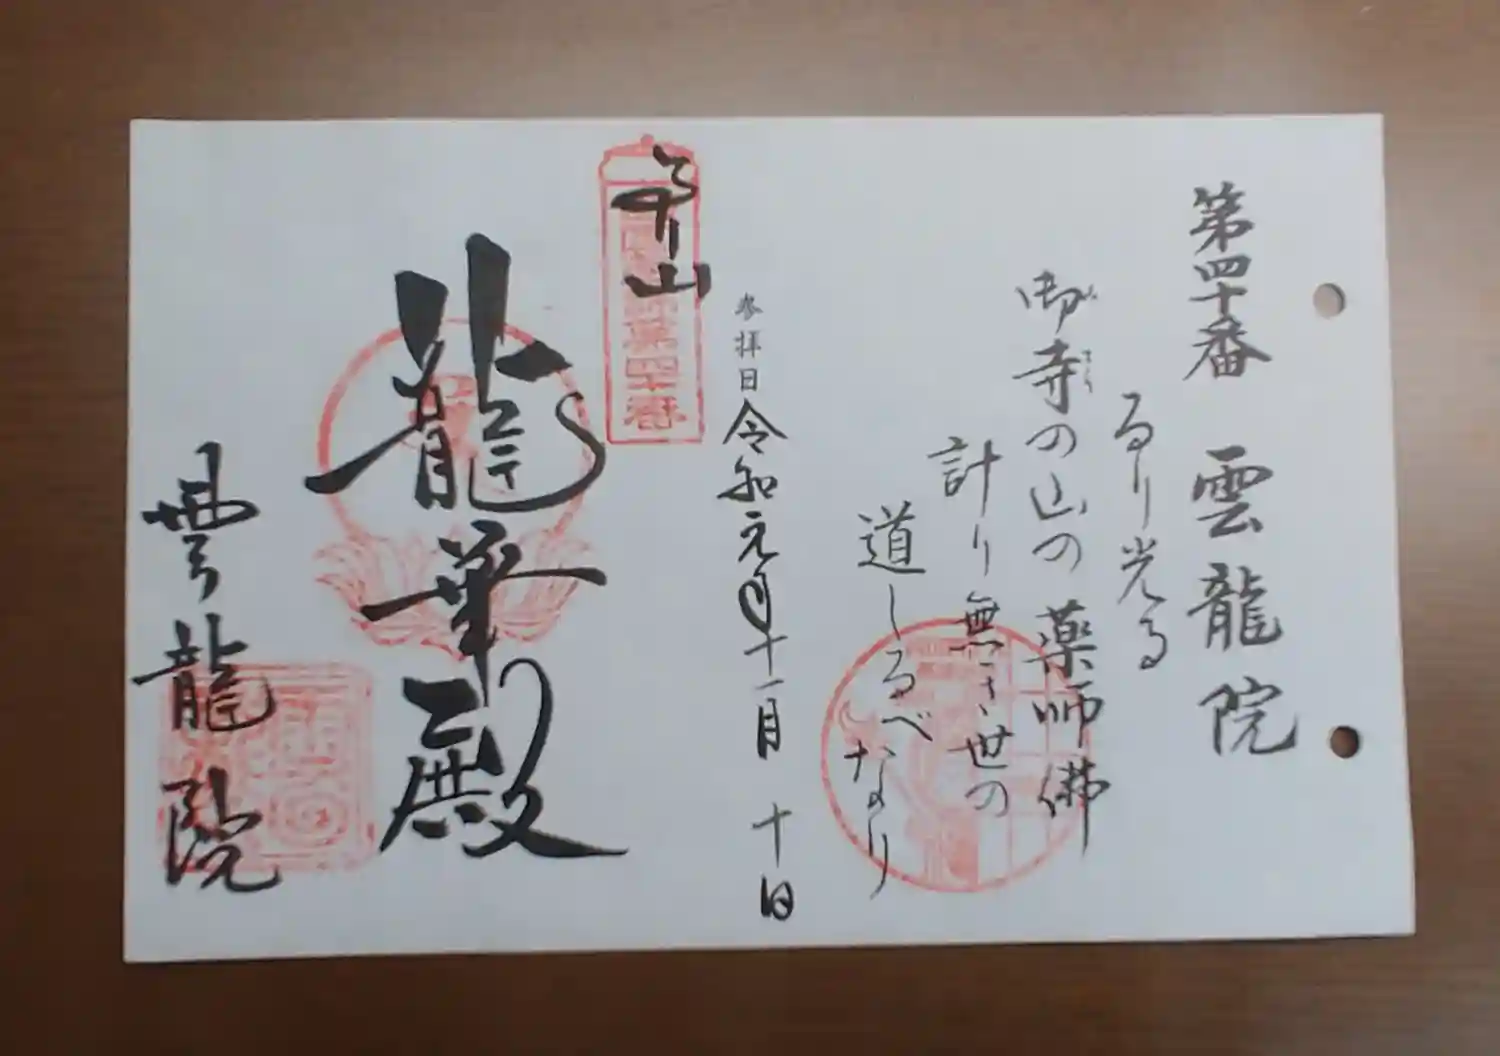 第四十番 雲龍院
るり光る
御寺の山の薬師佛
計り無き世の
道しるべなり
参拝日 令和元年十一月 十日
第四十番
龍華殿
雲龍院